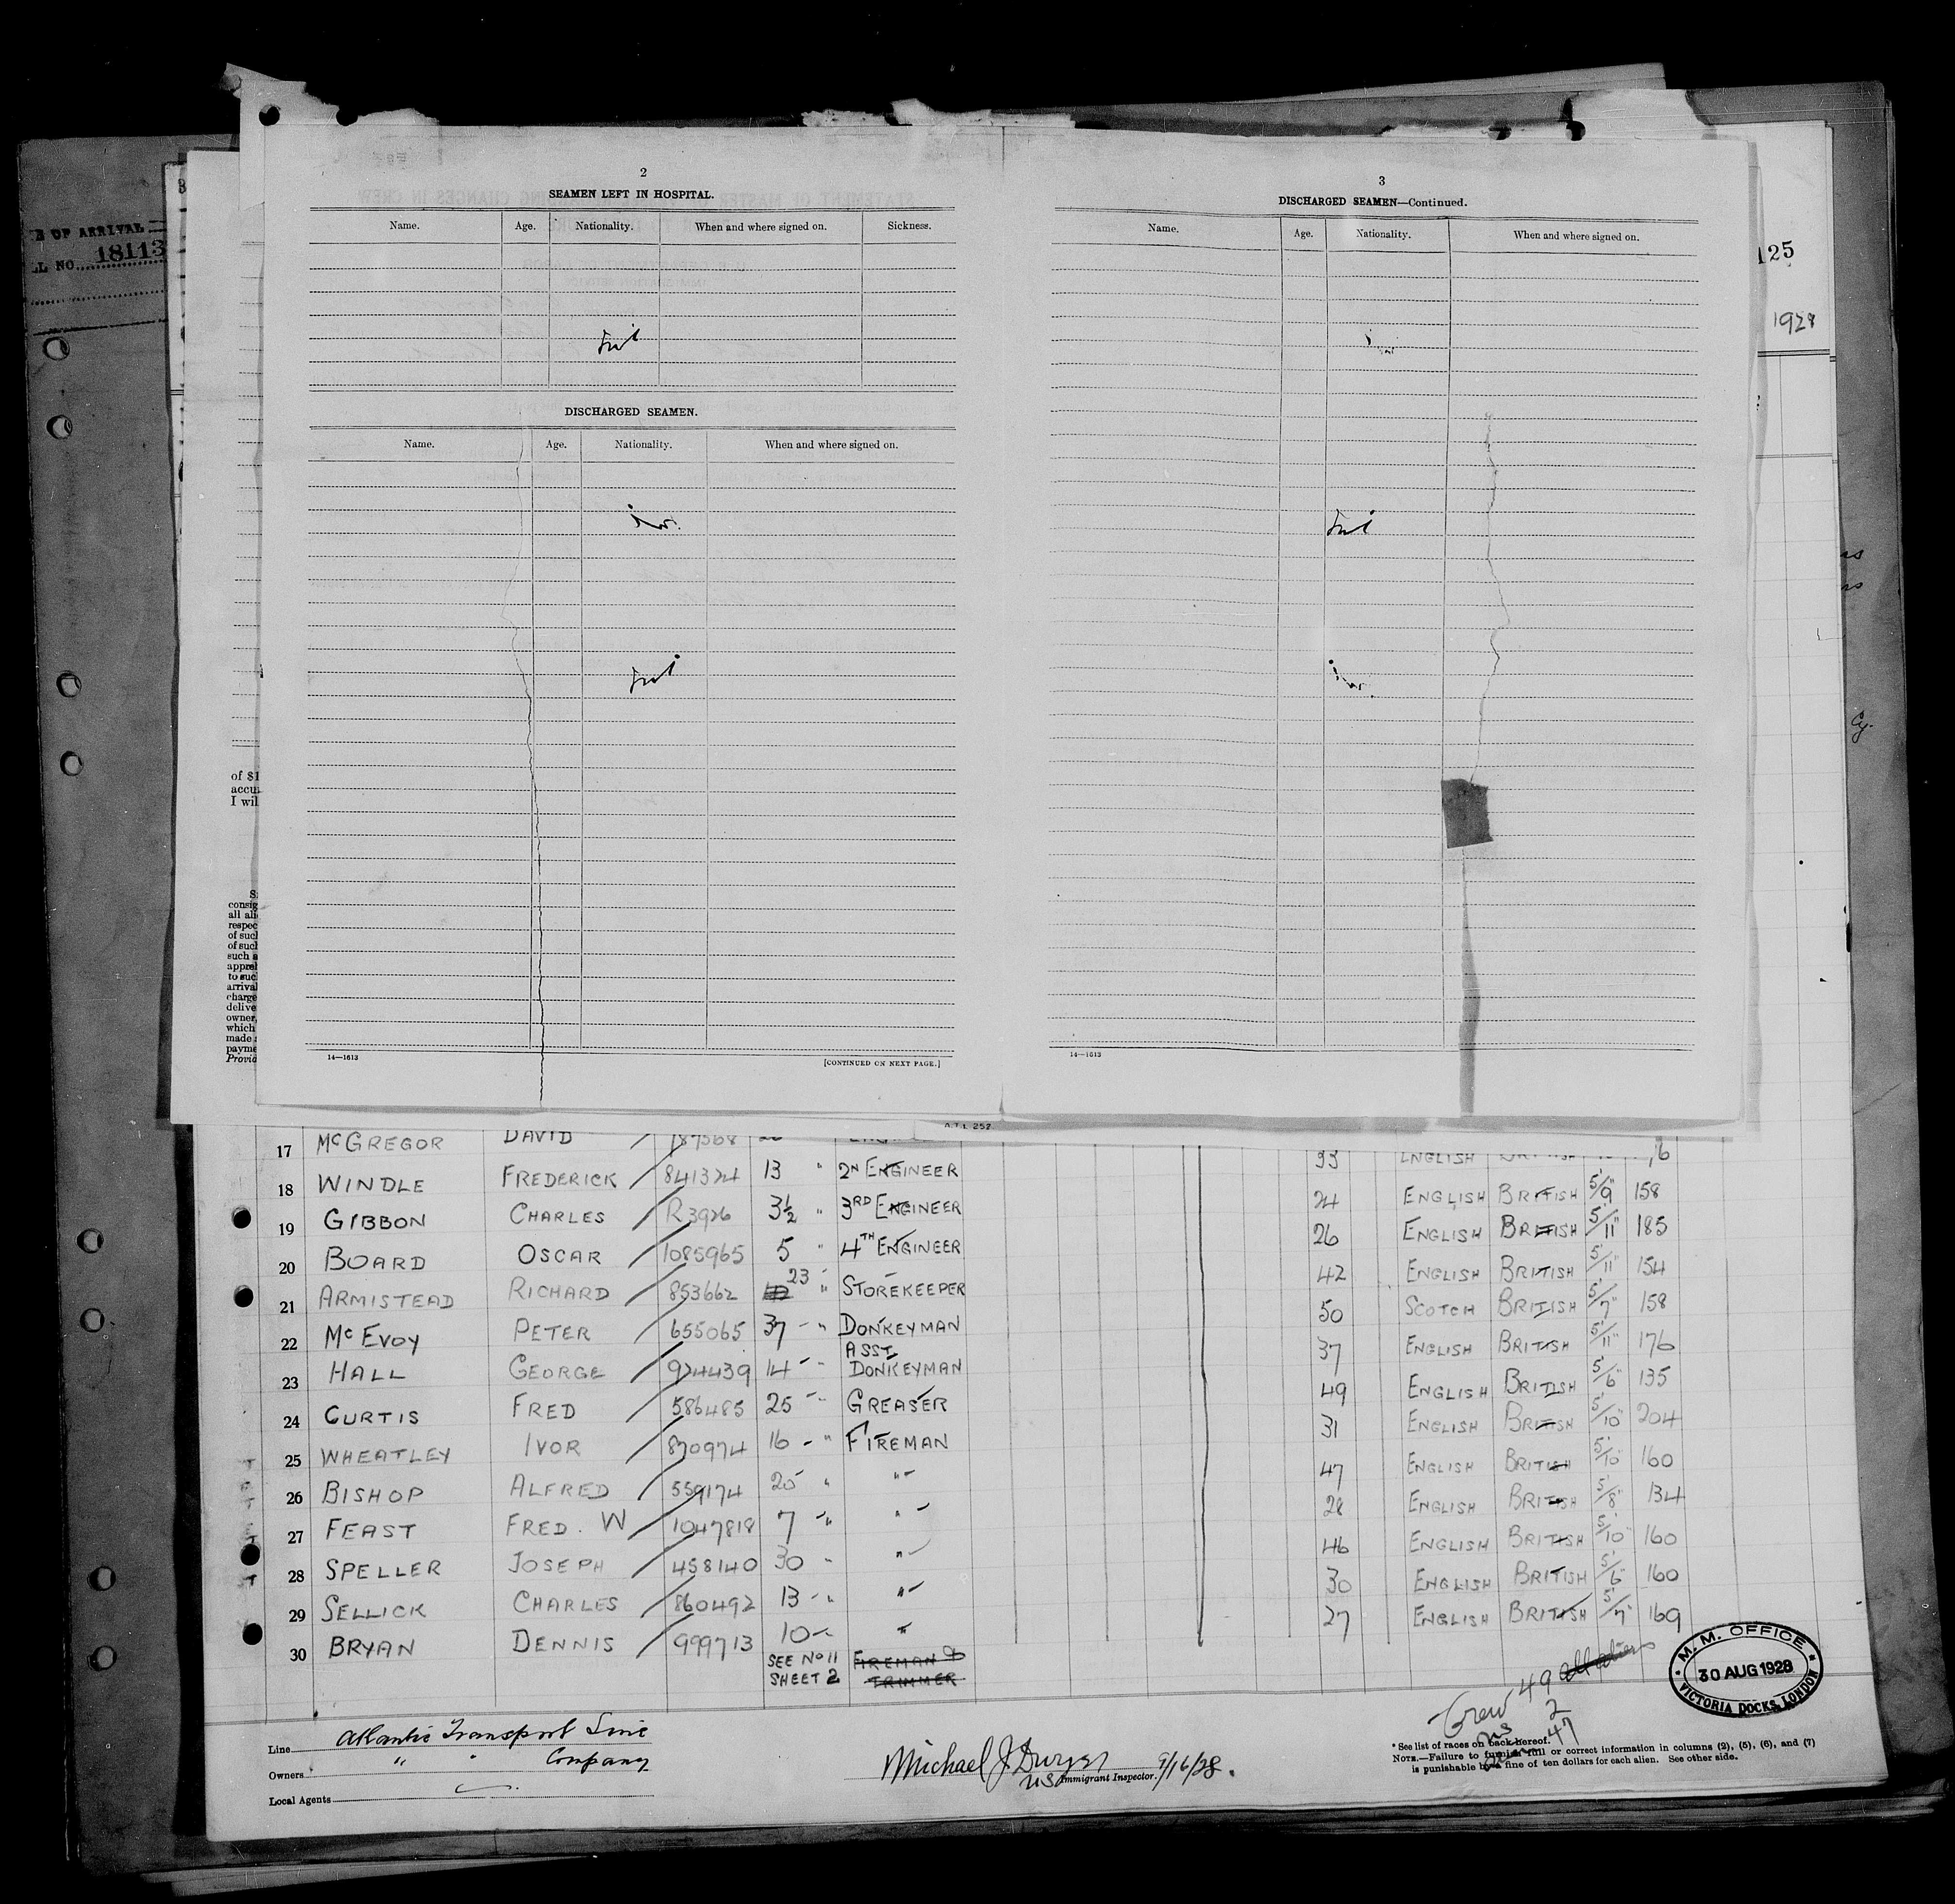 E OF ARRIVAL
LL NO. 18113
125
1928
2
SEAMEN LEFT IN HOSPITAL.
Name. Age. Nationality. When and where signed on. Sickness.
DISCHARGED SEAMEN.
Name. Age. Nationality. When and where signed on.
14—1613 [CONTINUED ON NEXT PAGE.]
3
DISCHARGED SEAMEN—Continued.
Name. Age. Nationality. When and where signed on.
14—1613
of $1
accu
I wil
consig
all ali
respec
of such
of such
such a
appreh
to suc
arrival
charge
delive
owner,
which
made a
payme
Provid
Cy.
17 McGREGOR DAVID 187568
33 ENGLISH
18 WINDLE FREDERICK 841324 13 " 2ND ENGINEER 24 ENGLISH BRITISH 5'/9" 158
19 GIBBON CHARLES R3926 3½ " 3RD ENGINEER 26 ENGLISH BRITISH 5'/11" 185
20 BOARD OSCAR 1085965 5 " 4TH ENGINEER 42 ENGLISH BRITISH 5'/11" 154
21 ARMISTEAD RICHARD 853662 23 " STOREKEEPER 50 SCOTCH BRITISH 5'/7" 158
22 McEVOY PETER 655065 37 " DONKEYMAN 37 ENGLISH BRITISH 5'/11" 176
23 HALL GEORGE 924439 14 " ASST DONKEYMAN 49 ENGLISH BRITISH 5'/6" 135
24 CURTIS FRED 586485 25 " GREASER 31 ENGLISH BRITISH 5'/10" 204
25 WHEATLEY IVOR 870974 16 " FIREMAN 47 ENGLISH BRITISH 5'/10" 160
26 BISHOP ALFRED 559174 25 " " 28 ENGLISH BRITISH 5'/8" 134
27 FEAST FRED. W 1047818 7 " " 46 ENGLISH BRITISH 5'/10" 160
28 SPELLER JOSEPH 458140 30 " " 30 ENGLISH BRITISH 5'/6" 160
29 SELLICK CHARLES 860492 13 " " 27 ENGLISH BRITISH 5'/7" 169
30 BRYAN DENNIS 999713 10 "
SEE No 11 FIREMAN &
SHEET 2 TRIMMER
Crew 49 all aliens
2
47
M. M. OFFICE
30 AUG 1928
VICTORIA DOCKS, LONDON
Line Atlantic Transport Line
Owners " " Company
Local Agents
Michael J Dwyer 9/16/28.
US Immigrant Inspector.
* See list of races on back hereof.
NOTE.—Failure to furnish full or correct information in columns (2), (5), (6), and (7)
is punishable by a fine of ten dollars for each alien. See other side.